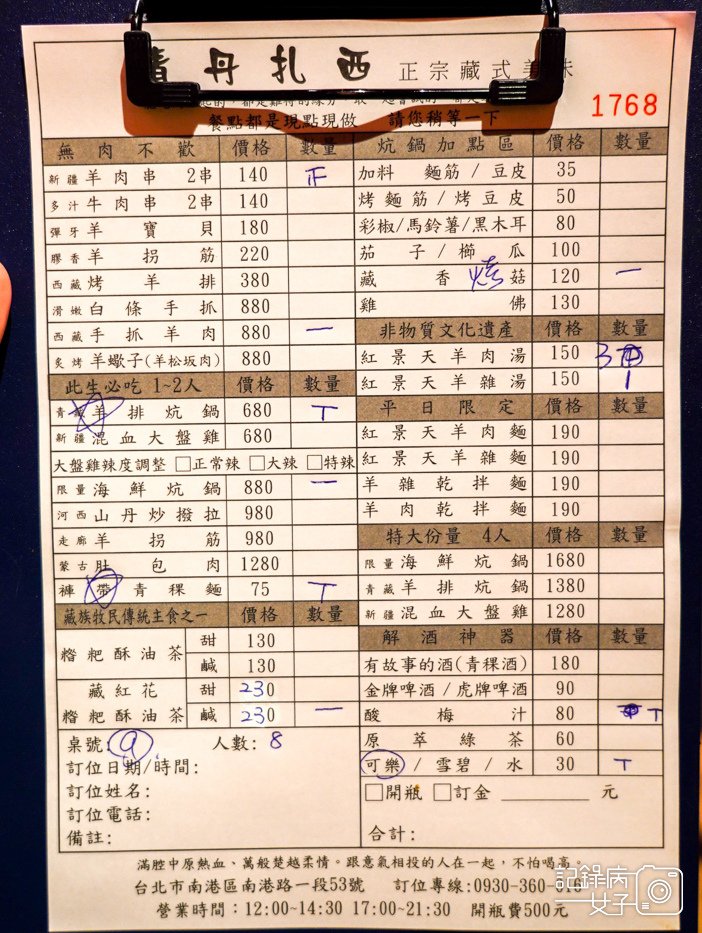 丹扎西 正宗藏式美味
餐點都是現點現做 請您稍等一下
1768
無肉不歡 價格 數量
新疆羊肉串 2串 140 正
多汁牛肉串 2串 140
彈牙羊寶貝 180
膠香羊拐筋 220
西藏烤羊排 380
滑嫩白條手抓 880
西藏手抓羊肉 880 一
炙烤羊蠍子(羊松坂肉) 880
此生必吃 1~2人 價格 數量
青藏羊排炕鍋 680 T
新疆混血大盤雞 680
大盤雞辣度調整 □正常辣 □大辣 □特辣
限量海鮮炕鍋 880 一
河西山丹炒撥拉 980
走廊羊拐筋 980
蒙古肚包肉 1280
褲帶青稞麵 75 T
藏族牧民傳統主食之一 價格 數量
糌粑酥油茶 甜 130
鹹 130
藏紅花 甜 230
糌粑酥油茶 鹹 230 一
桌號: 人數: 8
訂位日期/時間:
訂位姓名:
訂位電話:
備註:
炕鍋加點區 價格 數量
加料 麵筋/豆皮 35
烤麵筋/烤豆皮 50
彩椒/馬鈴薯/黑木耳 80
茄子/櫛瓜 100
藏香菇 120 一
雞佛 130
非物質文化遺產 價格 數量
紅景天羊肉湯 150 3
紅景天羊雜湯 150 1
平日限定 價格 數量
紅景天羊肉麵 190
紅景天羊雜麵 190
羊雜乾拌麵 190
羊肉乾拌麵 190
特大份量 4人 價格 數量
限量海鮮炕鍋 1680
青藏羊排炕鍋 1380
新疆混血大盤雞 1280
解酒神器 價格 數量
有故事的酒(青稞酒) 180
金牌啤酒/虎牌啤酒 90
酸梅汁 80 T
原萃綠茶 60
可樂/雪碧/水 30 T
□開瓶 □訂金 ________ 元
合計:
滿腔中原熱血、萬般楚越柔情。跟意氣相投的人在一起，不怕喝高。
台北市南港區南港路一段53號 訂位專線:0930-360-016
營業時間：12:00~14:30 17:00~21:30 開瓶費500元
記錄病女子